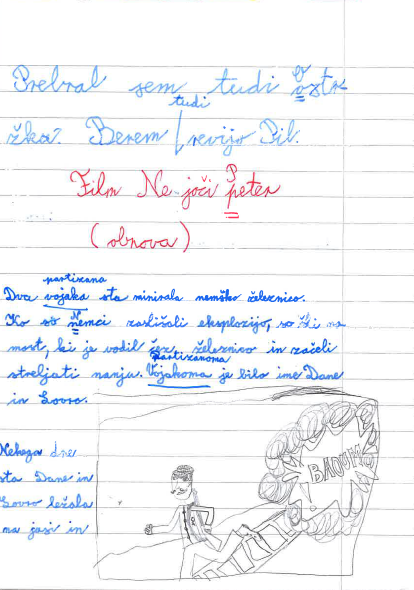 Prebral sem tudi Ostr
žka. Berem tudi revijo Pil.
Film Ne joči Peter
(obnova)
partizana
Dva vojaka sta minirala nemško železnico.
Ko so Nemci zaslišali eksplozijo, so šli na
most, ki je vodil čez železnico in začeli
partizanoma
streljati nanju. Vojakoma je bilo ime Dane
in Lovro.
Nekega dne
sta Dane in
Lovro ležala
na jasi in
BADUM